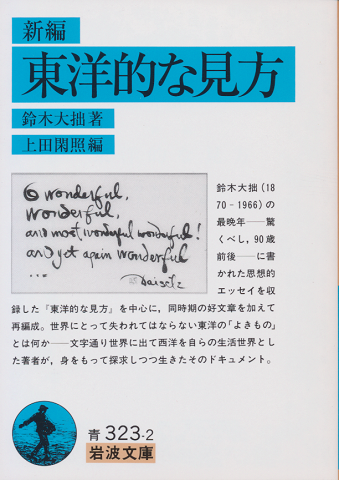 新編
東洋的な見方
鈴木大拙著
上田閑照編
O wonderful,
wonderful,
and most wonderful wonderful!
and yet again wonderful
...
Daisetz
鈴木大拙(18
70-1966)の
最晩年──驚
くべし,90歳
前後──に書
かれた思想的
エッセイを収
録した『東洋的な見方』を中心に,同時期の好文章を加えて
再編成。世界にとって失われてはならない東洋の「よきもの」
とは何か──文字通り世界に出て西洋を自らの生活世界とし
た著者が,身をもって探求しつつ生きたそのドキュメント。
青 323-2
岩波文庫